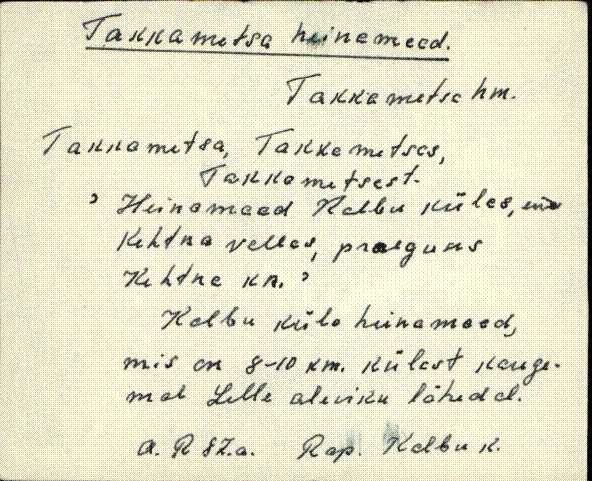 Takkametsa heinamaad.
Takkametsa hm.
Takkametsa, Takkametsas,
Takkametsast.
' Heinamaad Kalbu külas, end.
Kehtna vallas, praeguns
Kehtna kn. '
Kalbu küla heinamaad,
mis on 8-10 km. külast kauge-
mal Lelle aleviku lähedal.
a. R 82.a. Rap. Kalbu k.